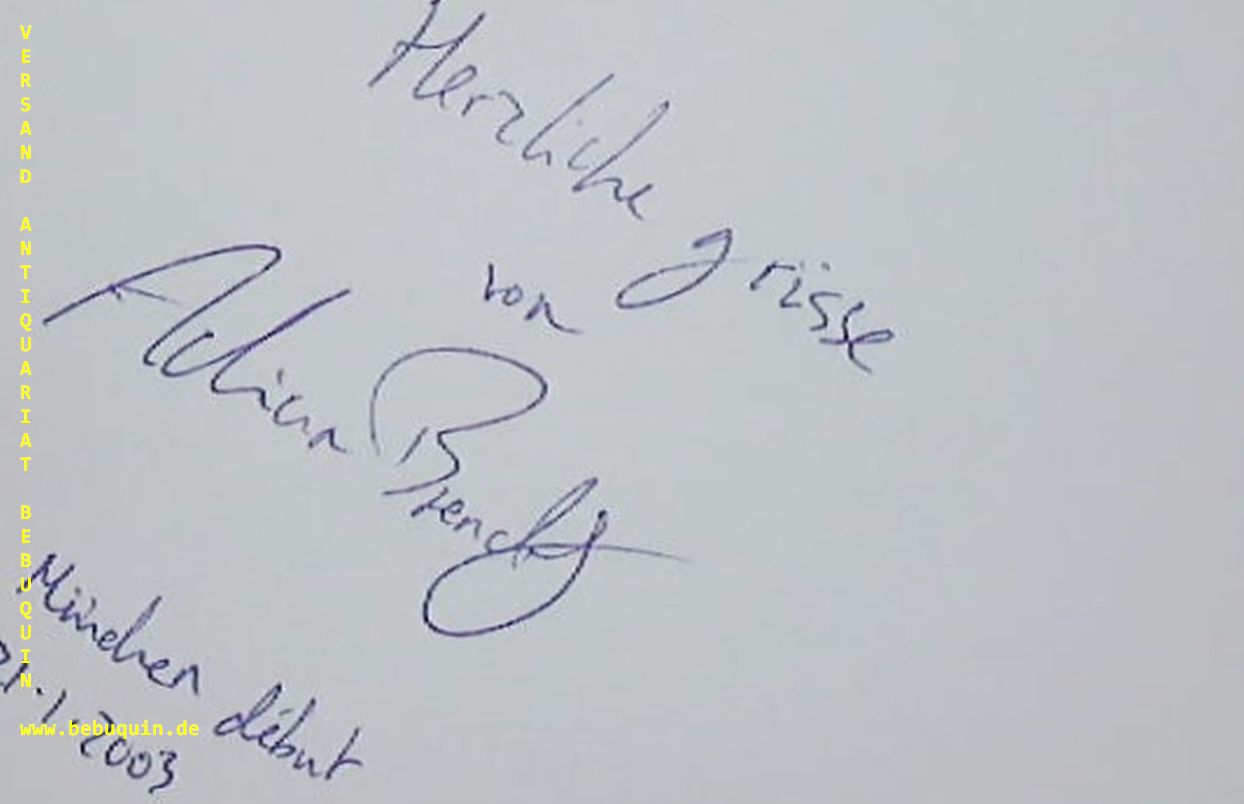 Herzliche
grüsse
von
Adrian Brendel
München début
21.1.2003
VERSAND ANTIQUARIAT BEBUQUIN
www.bebuquin.de